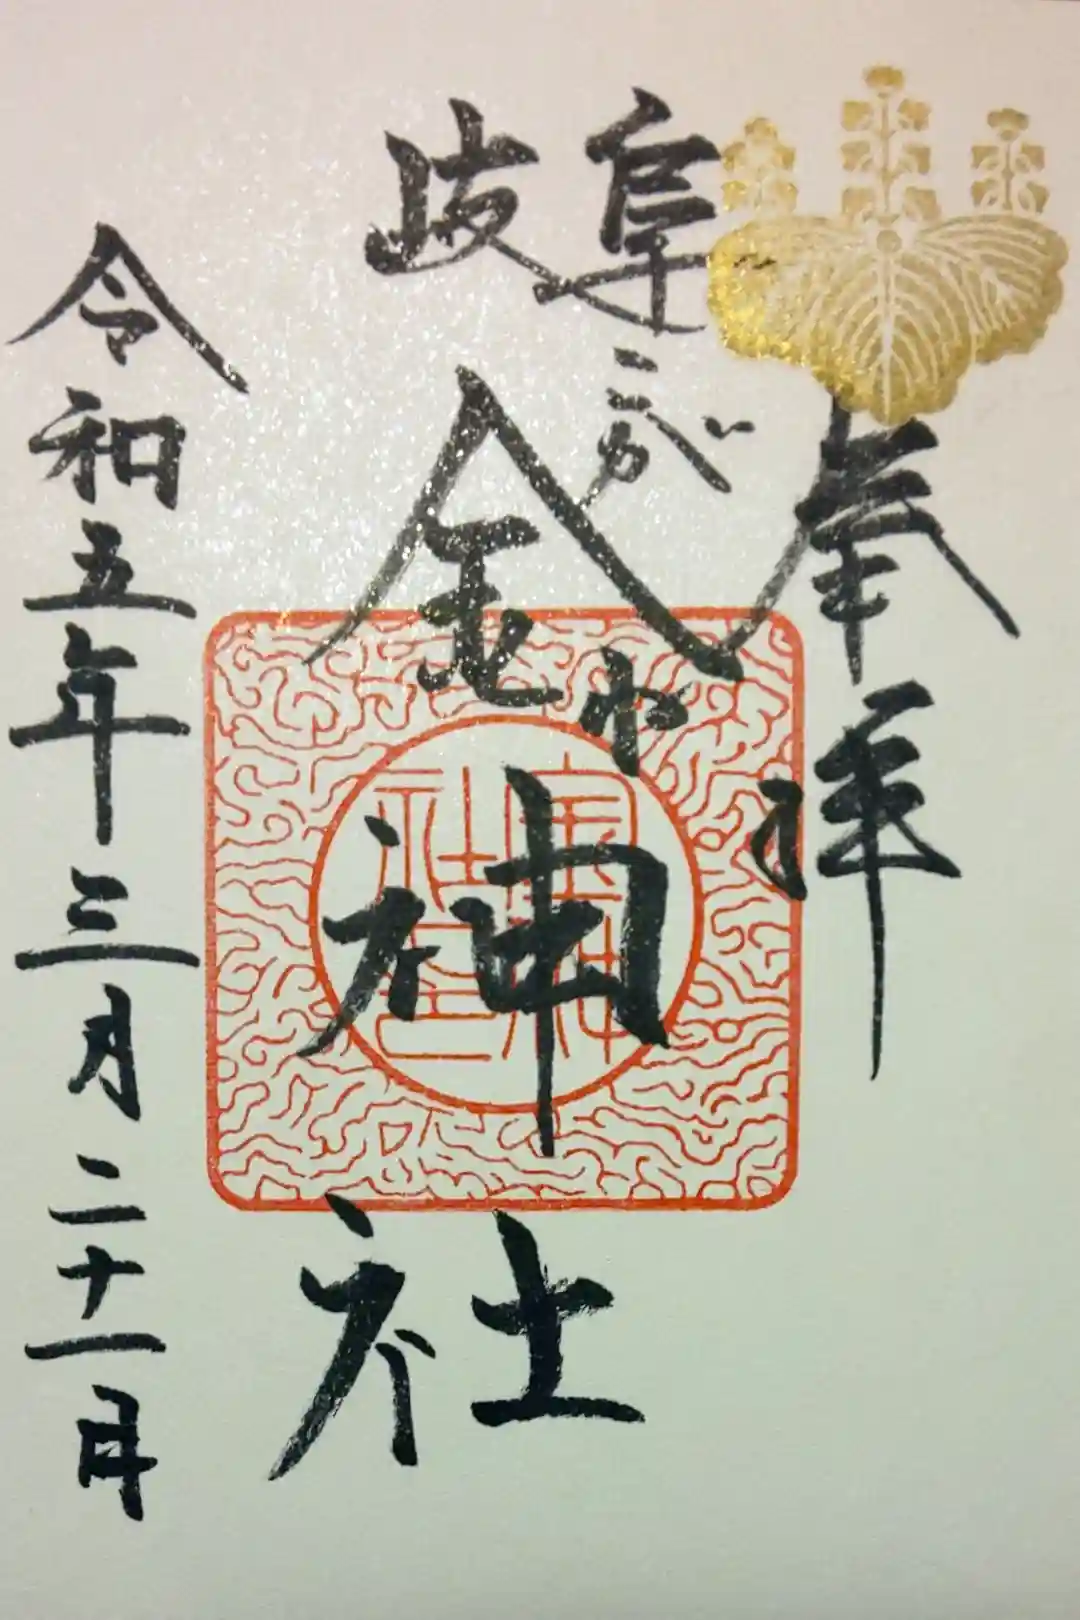 奉拝
岐阜
こが
金神社
令和五年三月二十一日